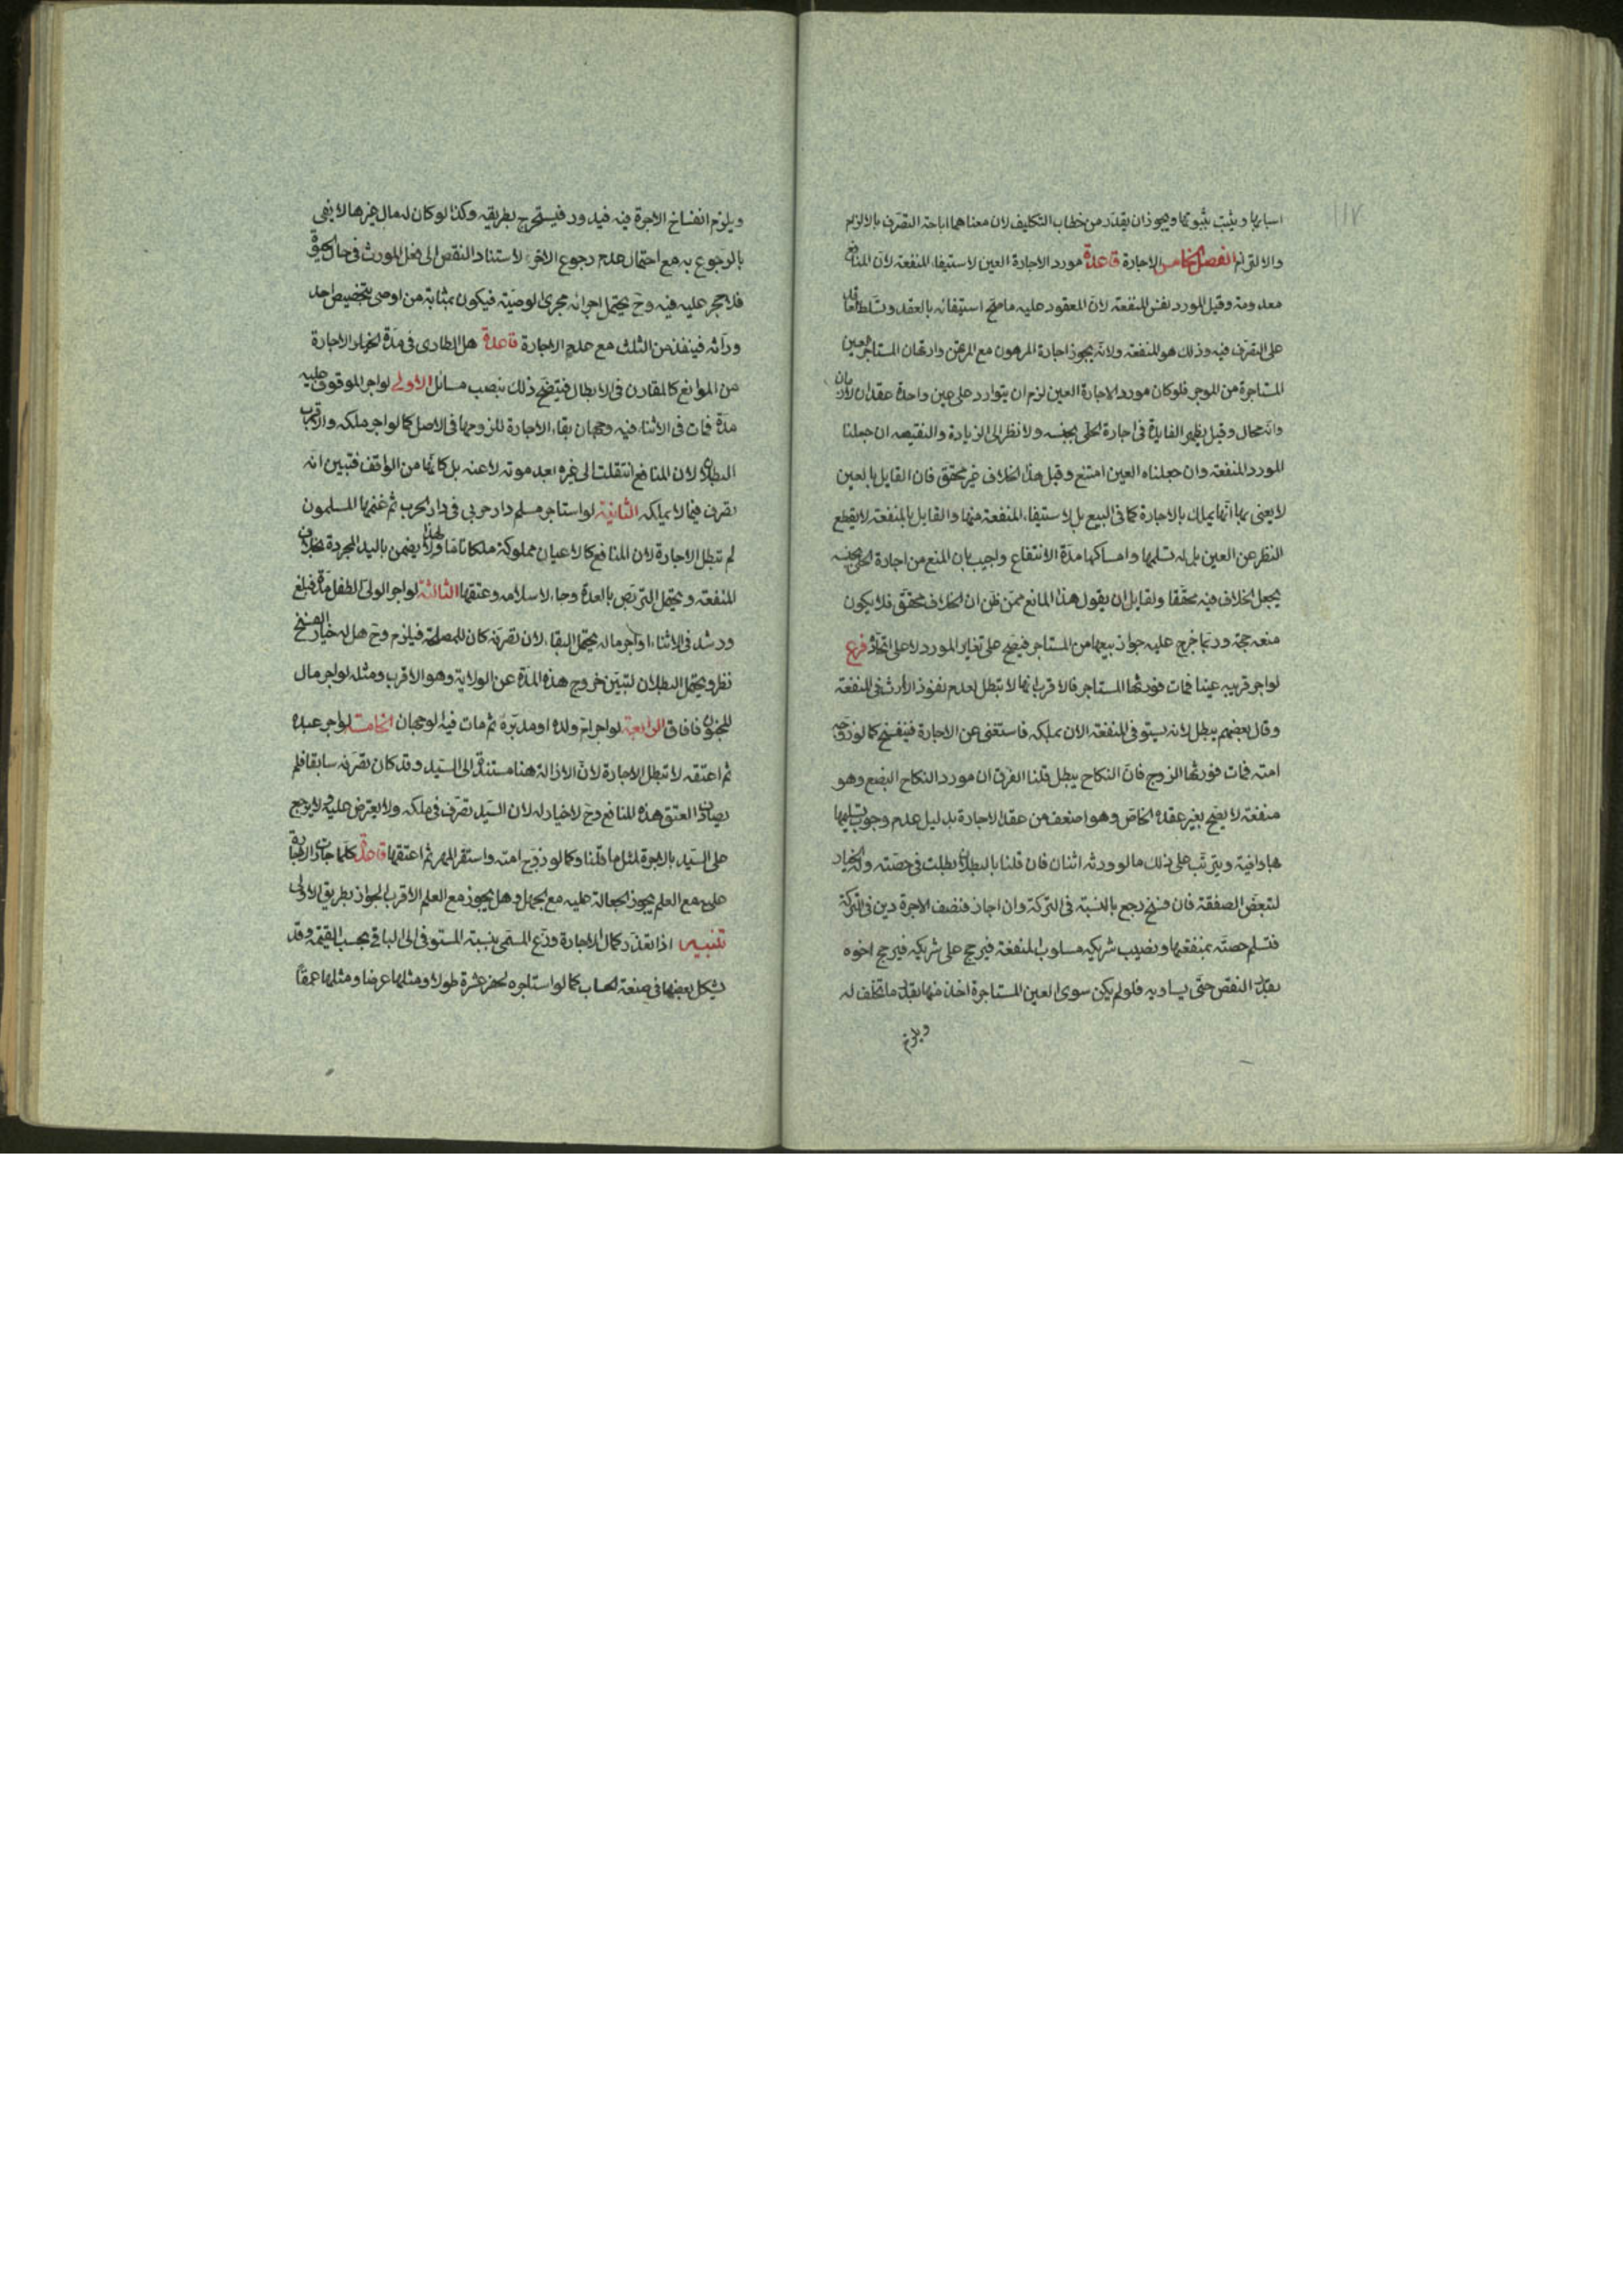 اسبابها ويثبت بثبوتها ويجوز ان يقدر من خطاب التكليف لان معناهما اباحة التصرف بالالزام
والالتزام الفصل الخامس الاجارة قاعدة مورد الاجارة العين لاستيفاء المنفعة لان المنافع
معدومة وقيل المورد نفس المنفعة لان المعقود عليه ما صح استيفائه بالعقد وتسلط العاقد
على التصرف فيه وذلك هو المنفعة ولانه يجوز اجارة المرهون مع المرتهن وارتهان المستاجر العين
المستاجرة من الموجر فلو كان مورد الاجارة العين لزم ان يتوارد على عين واحدة عقدان لازمان
وانه محال وقيل يظهر الفايدة في اجارة الحلي بجنسه ولا نظر الى الزيادة والنقيصه ان جعلنا
المورد المنفعة وان جعلناه العين امتنع وقيل هذا الخلاف غير محقق فان القايل بالعين
لا يعنى بها انها يملك بالاجارة كما في البيع بل لاستيفاء المنفعة منها والقايل بالمنفعة لا يقطع
النظر عن العين بل له تسلمها وامساكها مدة الانتفاع واجيب بان المنع من اجارة الحلي بجنسه
يجعل الخلاف فيه محققا ولقايل ان يقول هذا المانع ممن ظن ان الخلاف محقق فلا يكون
منعه حجة وربما خرج عليه جواز بيعها من المستاجر فيصح على تغاير المورد لا على اتحاده فرع
لو اجر قريبه عينا فمات فورثها المستاجر فالاقرب انها لا تبطل لعدم نفوذ الارث في المنفعة
وقال بعضهم يبطل لانه يستوفى المنفعة الان بملكه فاستغنى عن الاجارة فينفسخ كما لو زوجه
امته فمات فورثها الزوج فان النكاح يبطل قلنا الفرق ان مورد النكاح البضع وهو
منفعة لا يصح بغير عقده الخاص وهو اضعف من عقد الاجارة بدليل عدم وجوب تسليمها
ويترتب على ذلك ما لو ورثه اثنان فان قلنا بالبطلان بطلت في حصته وله الخيار
لتبعض الصفقة فان فسخ رجع بالنسبة في التركة وان اجاز فنصف الاجرة دين في التركة
فتسلم حصته بمنفعتها ونصيب شريكه مسلوب المنفعة فيرجح على شريكه فيرجح اخوه
بقدر النقص حتى يساويه فلو لم يكن سوى العين المستاجرة اخذ منها بقدر ما تخلف له
ويلزم
ويلزم انفساخ الاجرة فيه فيدور فيستخرج بطريقه وكذا لو كان له مال غيرها لا يفي
بالرجوع به مع احتمال عدم رجوع الاخر لاستناد النقص الى فعل المورث في حال الحيوة
فلا حجر عليه فيه وح يحتمل اجرائه مجرى الوصية فيكون بمثابة من اوصى بتخصيص احد
وراثه فينفذ من الثلث مع عدم الاجارة قاعدة هل الطارى في مدة الخيار الاجارة
من الموانع كالمقارن في الابطال فيتضح ذلك بنصب مسائل الاولى لو اجر الموقوف عليه
مدة فمات في الاثناء فيه وجهان بقاء الاجارة للزومها في الاصل كما لو اجر ملكه والاقرب
البطلان لان المنافع انتقلت الى غيره بعد موته لا عنه بل كانها من الواقف فتبين انه
تصرف فيما لا يملكه الثانية لو استاجر مسلم دار حربي في دار الحرب ثم غنمها المسلمون
لم تبطل الاجارة لان المنافع كالاعيان مملوكة ملكا تاما ولهذا يضمن باليد المجردة بخلاف
المنفعة ويحتمل التربص بالعدة وجاء لاسلامه وعتقها الثالثة لو اجر الولي الطفل مدة فبلغ
ورشد في الاثناء او اجر ماله يحتمل البقاء لان تصرفه كان للمصلحة فيلزم وح هل له خيار الفسخ
نظر ويحتمل البطلان لتبين خروج هذه المدة عن الولاية وهو الاقرب ومثله لو اجر مال
المجنون فافاق الرابعة لو اجر ام ولده او مدبره ثم مات فيه الوجهان الخامسة لو اجر عبده
ثم اعتقه لا تبطل الاجارة لان الازالة هنا مستندة الى السيد وقد كان تصرفه سابقا فلم
يصادف العتق هذه المنافع وح لا خيار له لان السيد تصرف في ملكه ولا يعترض عليه ولا يرجع
على السيد بالاجرة لمثل ما قلنا وكما لو زوج امته واستقر المهر ثم اعتقها قاعدة كلما جازت الاجارة
عليه مع العلم يجوز الجعالة عليه مع الجهل وهل يجوز مع العلم الاقرب الجواز بطريق الاولى
تنبيه اذا تعذر كمال الاجارة وزع المسمى بنسبة المستوفى الى الباقي بحسب القيمة وقد
يشكل بعضها في صنعة الحساب كما لو استاجره لحفر عشرة طولا ومثلها عرضا ومثلها عمقا